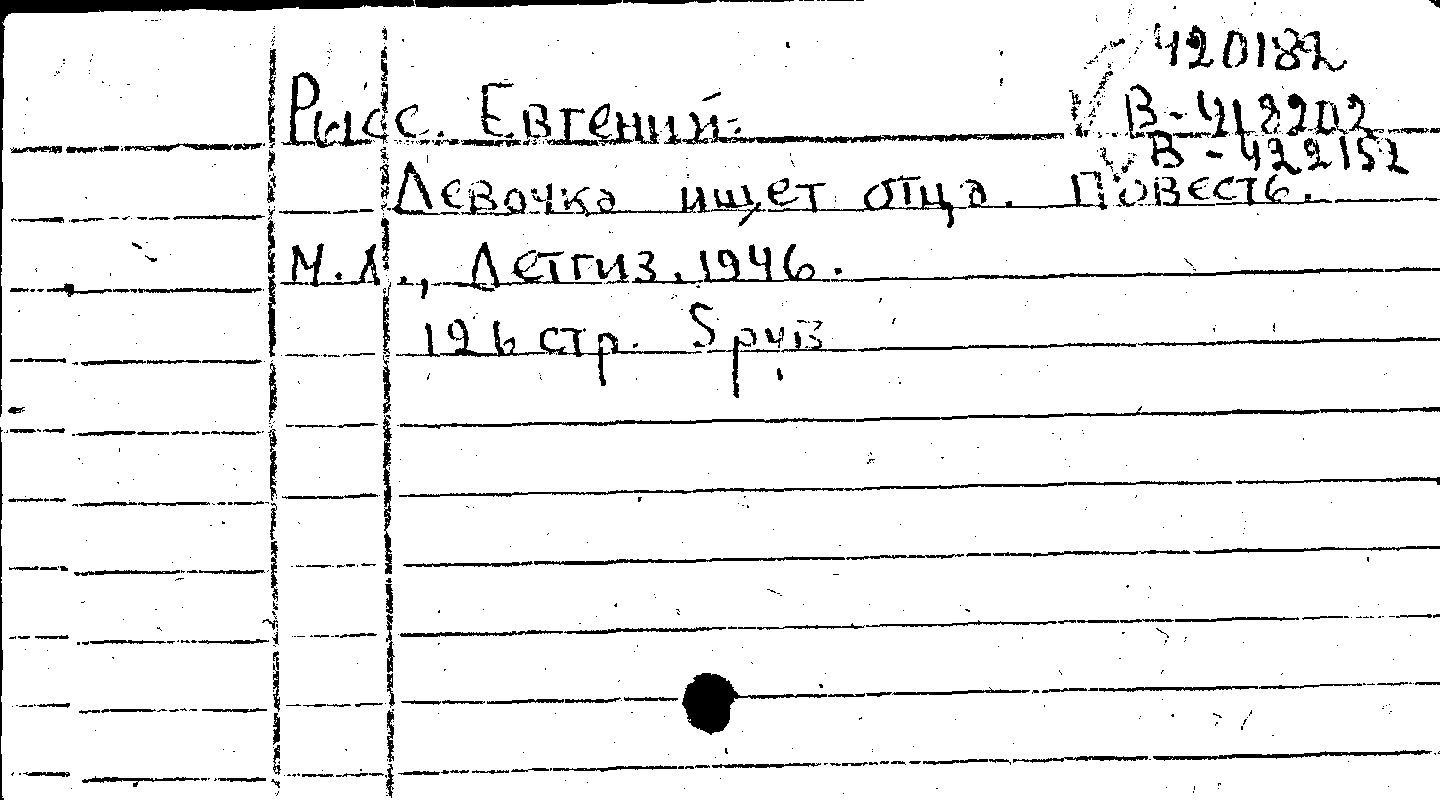 420182
Рысс. Евгений.
В-418202
В-422152
Девочка ищет отца. Повесть.
М.Л., Детгиз. 1946.
126 стр. 5 руб